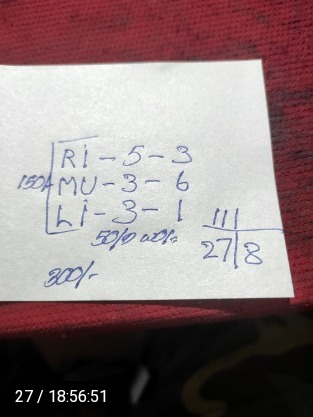 RI - 5 - 3
150/- MU - 3 - 6
LI - 3 - 1
111
27|8
300/-
27 / 18:56:51